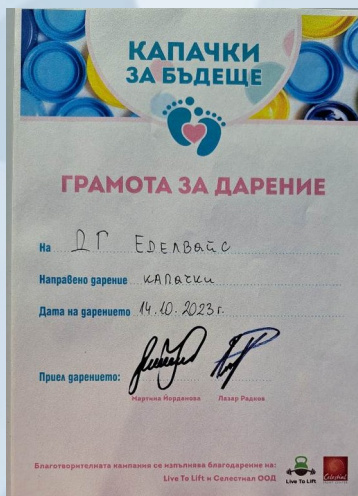 КАПАЧКИ
ЗА БЪДЕЩЕ
ГРАМОТА ЗА ДАРЕНИЕ
На ДГ ЕДЕЛВАЙС
Направено дарение КАПАЧКИ
Дата на дарението 14.10.2023г.
Приел дарението:
Мартина Йорданова Лазар Радков
Благотворителната кампания се изпълнява благодарение на:
Live To Lift и Селестиал ООД
Live To Lift
Celestial